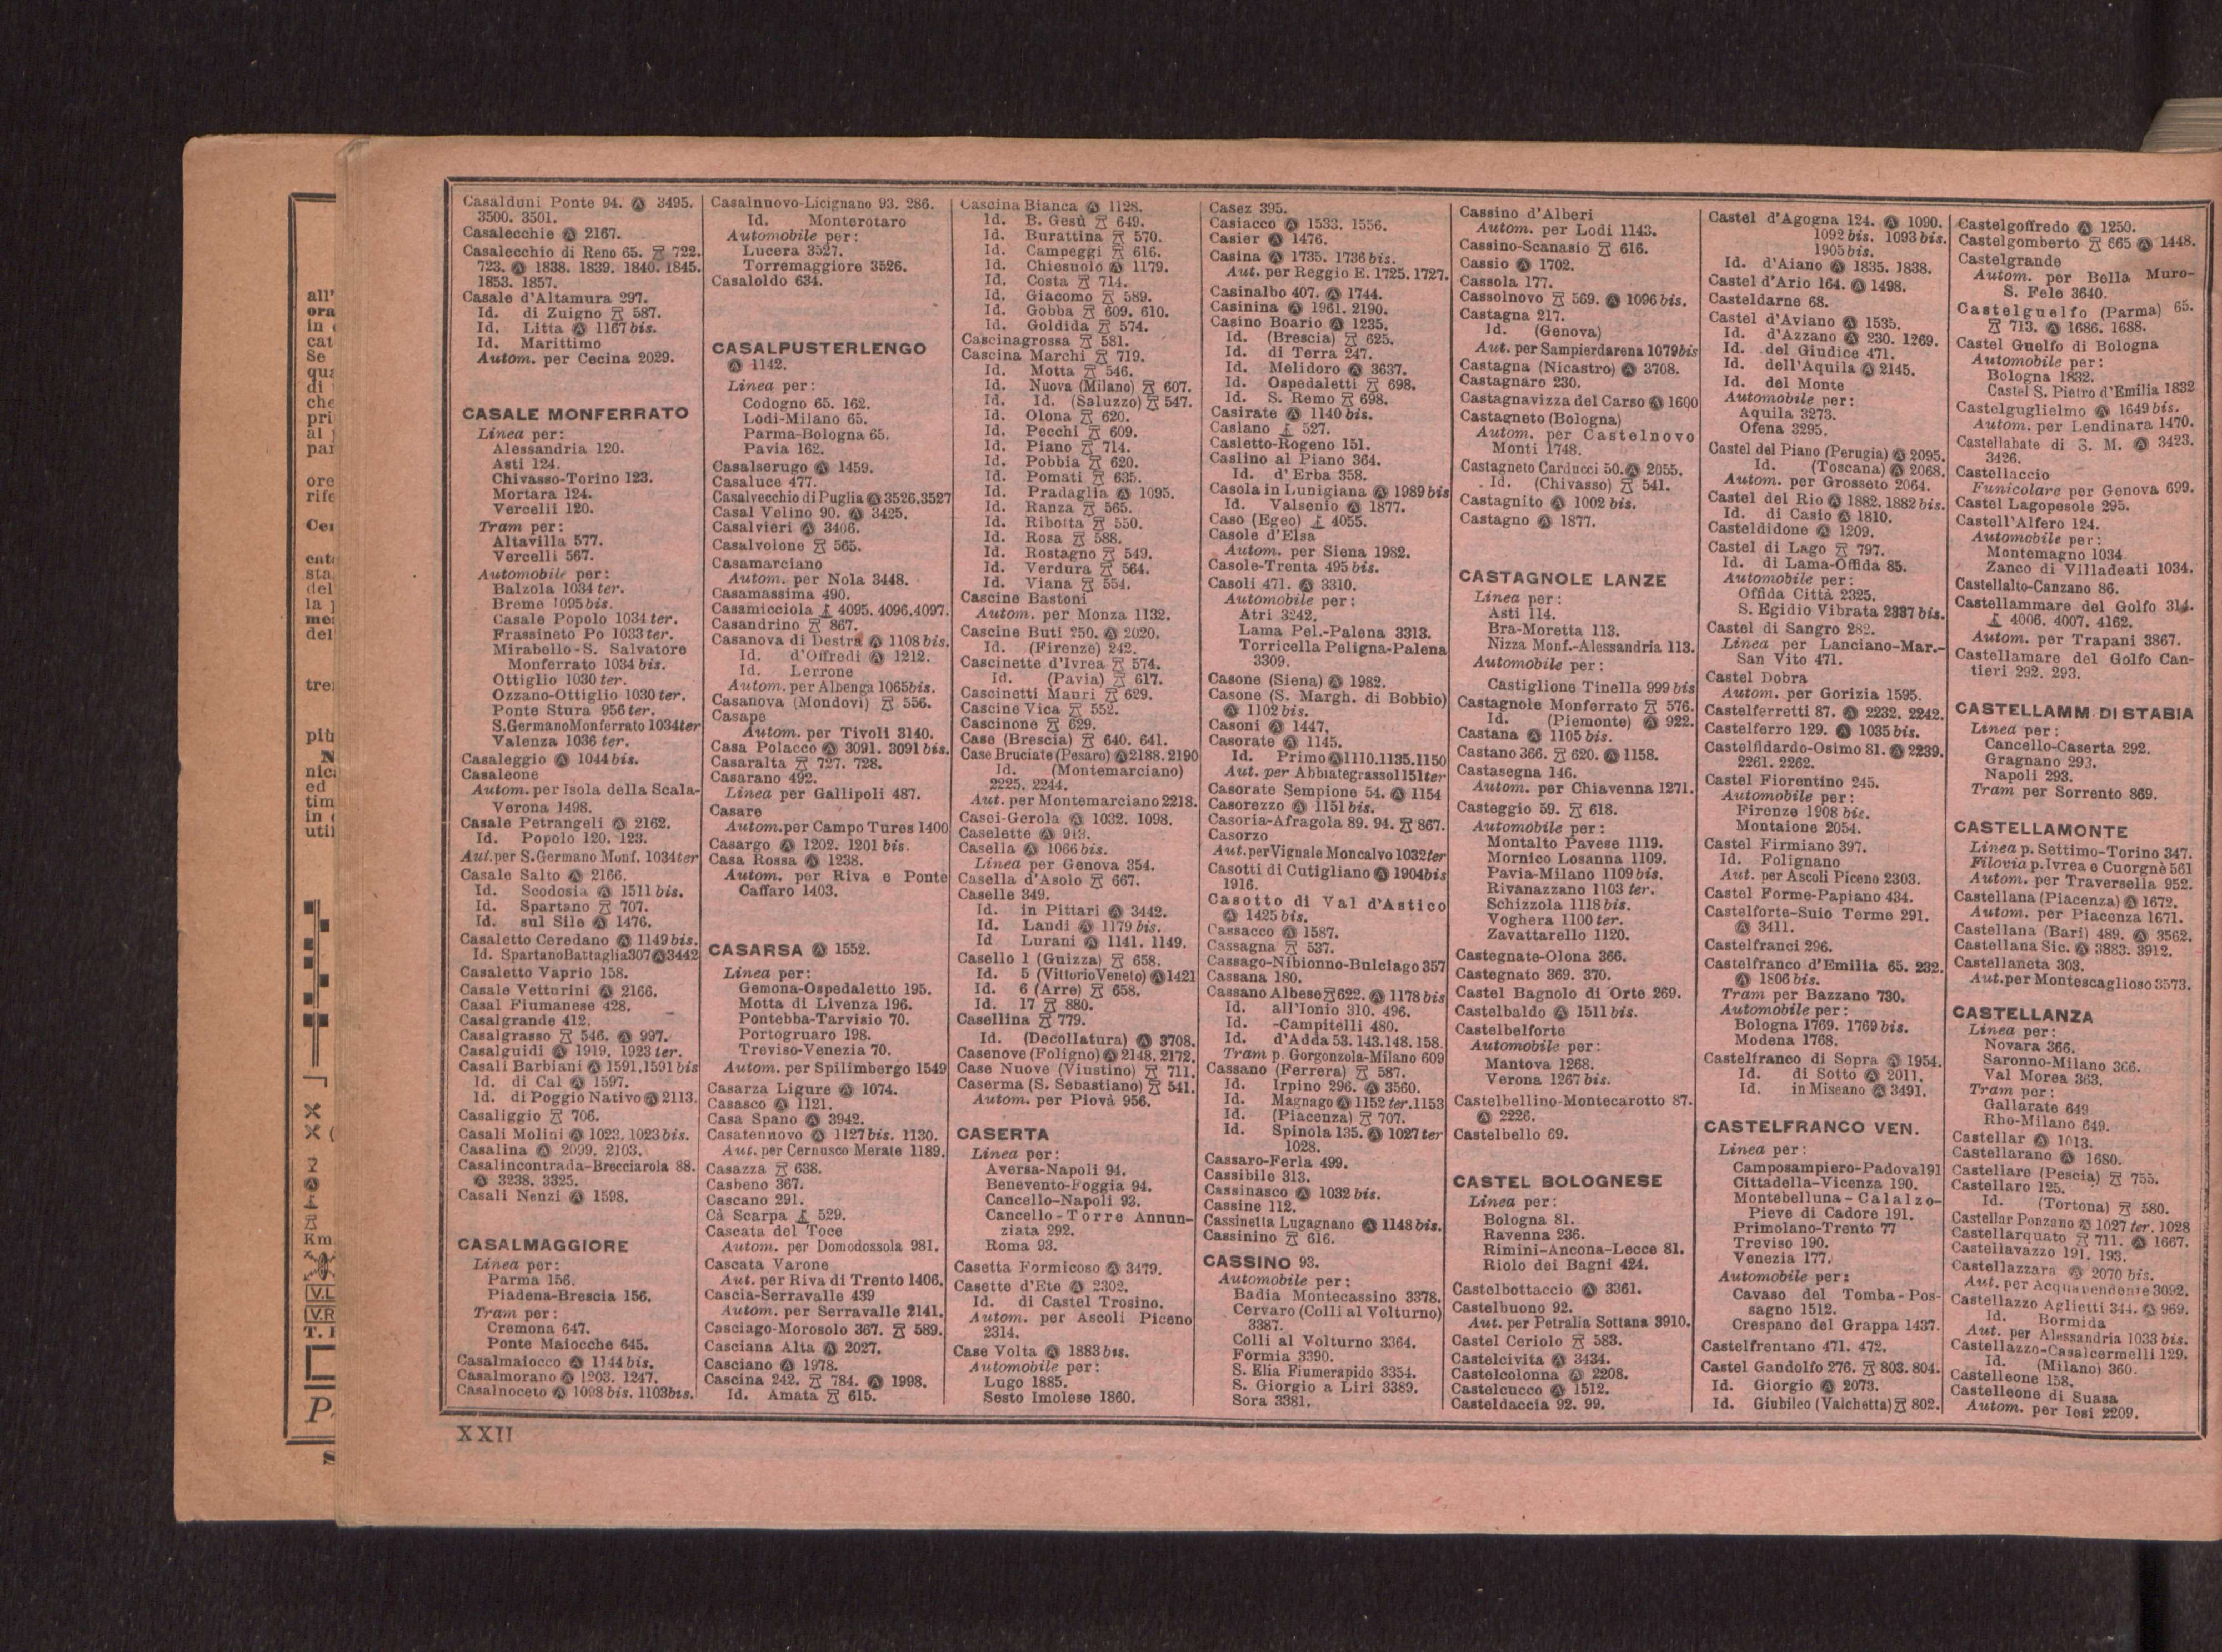 Casalduni Ponte 94. Ⓐ 3495.
3500. 3501.
Casalecchie Ⓐ 2167.
Casalecchio di Reno 65. 722.
723. Ⓐ 1838. 1839. 1840. 1845.
1853. 1857.
Casale d'Altamura 297.
Id. di Zuigno 587.
Id. Litta Ⓐ 1167 bis.
Id. Marittimo
Autom. per Cecina 2029.
CASALE MONFERRATO
Linea per:
Alessandria 120.
Asti 124.
Chivasso-Torino 123.
Mortara 124.
Vercelli 120.
Tram per:
Altavilla 577.
Vercelli 567.
Automobile per:
Balzola 1034 ter.
Breme 1095 bis.
Casale Popolo 1034 ter.
Frassineto Po 1033 ter.
Mirabello-S. Salvatore
Monferrato 1034 bis.
Ottiglio 1030 ter.
Ozzano-Ottiglio 1030 ter.
Ponte Stura 956 ter.
S. Germano Monferrato 1034 ter
Valenza 1036 ter.
Casaleggio Ⓐ 1044 bis.
Casaleone
Autom. per Isola della Scala-
Verona 1498.
Casale Petrangeli Ⓐ 2162.
Id. Popolo 120. 123.
Aut. per S. Germano Monf. 1034 ter
Casale Salto Ⓐ 2166.
Id. Scodosia Ⓐ 1511 bis.
Id. Spartano 707.
Id. sul Sile Ⓐ 1476.
Casaletto Ceredano Ⓐ 1149 bis.
Id. Spartano Battaglia 307 Ⓐ 3442
Casaletto Vaprio 158.
Casale Vetturini Ⓐ 2166.
Casal Fiumanese 428.
Casalgrande 412.
Casalgrasso 546. Ⓐ 997.
Casalguidi Ⓐ 1919. 1923 ter.
Casali Barbiani Ⓐ 1591. 1591 bis
Id. di Cal Ⓐ 1597.
Id. di Poggio Nativo Ⓐ 2113.
Casaliggio 706.
Casali Molini Ⓐ 1023. 1023 bis.
Casalina Ⓐ 2099. 2103.
Casalincontrada-Brecciarola 88.
Ⓐ 3238. 3325.
Casali Nenzi Ⓐ 1598.
CASALMAGGIORE
Linea per:
Parma 156.
Piadena-Brescia 156.
Tram per:
Cremona 647.
Ponte Maiocche 645.
Casalmaiocco Ⓐ 1144 bis.
Casalmorano Ⓐ 1203. 1247.
Casalnoceto Ⓐ 1098 bis. 1103 bis.
Casalnuovo-Licignano 93. 286.
Id. Monterotaro
Automobile per:
Lucera 3527.
Torremaggiore 3526.
Casaloldo 634.
CASALPUSTERLENGO
Ⓐ 1142.
Linea per:
Codogno 65. 162.
Lodi-Milano 65.
Parma-Bologna 65.
Pavia 162.
Casalserugo Ⓐ 1459.
Casaluce 477.
Casalvecchio di Puglia Ⓐ 3526. 3527
Casal Velino 90. Ⓐ 3425.
Casalvieri Ⓐ 3406.
Casalvolone 565.
Casamarciano
Autom. per Nola 3448.
Casamassima 490.
Casamicciola 4095. 4096. 4097.
Casandrino 867.
Casanova di Destra Ⓐ 1108 bis.
Id. d'Offredi Ⓐ 1212.
Id. Lerrone
Autom. per Albenga 1065 bis.
Casanova (Mondovì) 556.
Casape
Autom. per Tivoli 3140.
Casa Polacco Ⓐ 3091. 3091 bis.
Casaralta 727. 728.
Casarano 492.
Linea per Gallipoli 487.
Casare
Autom. per Campo Tures 1400
Casargo Ⓐ 1202. 1201 bis.
Casa Rossa Ⓐ 1238.
Autom. per Riva e Ponte
Caffaro 1403.
CASARSA Ⓐ 1552.
Linea per:
Gemona-Ospedaletto 195.
Motta di Livenza 196.
Pontebba-Tarvisio 70.
Portogruaro 198.
Treviso-Venezia 70.
Autom. per Spilimbergo 1549
Casarza Ligure Ⓐ 1074.
Casasco Ⓐ 1121.
Casa Spano Ⓐ 3942.
Casatennovo Ⓐ 1127 bis. 1130.
Aut. per Cernusco Merate 1189.
Casazza 638.
Casbeno 367.
Cascano 291.
Cà Scarpa 529.
Cascata del Toce
Autom. per Domodossola 981.
Cascata Varone
Aut. per Riva di Trento 1406.
Cascia-Serravalle 439
Autom. per Serravalle 2141.
Casciago-Morosolo 367. 589.
Casciana Alta Ⓐ 2027.
Casciano Ⓐ 1978.
Cascina 242. 784. Ⓐ 1998.
Id. Amata 615.
Cascina Bianca Ⓐ 1128.
Id. B. Gesù 649.
Id. Burattina 570.
Id. Campeggi 616.
Id. Chiesuolo Ⓐ 1179.
Id. Costa 714.
Id. Giacomo 589.
Id. Gobba 609. 610.
Id. Goldida 574.
Cascinagrossa 581.
Cascina Marchi 719.
Id. Motta 546.
Id. Nuova (Milano) 607.
Id. Id. (Saluzzo) 547.
Id. Olona 620.
Id. Pecchi 609.
Id. Piano 714.
Id. Pobbia 620.
Id. Pomati 635.
Id. Pradaglia Ⓐ 1095.
Id. Ranza 565.
Id. Ribotta 550.
Id. Rosa 588.
Id. Rostagno 549.
Id. Verdura 564.
Id. Viana 554.
Cascine Bastoni
Autom. per Monza 1132.
Cascine Buti 250. Ⓐ 2020.
Id. (Firenze) 242.
Cascinette d'Ivrea 574.
Id. (Pavia) 617.
Cascinetti Mauri 629.
Cascine Vica 552.
Cascinone 629.
Case (Brescia) 640. 641.
Case Bruciate (Pesaro) Ⓐ 2188. 2190
Id. (Montemarciano)
2225. 2244.
Aut. per Montemarciano 2218.
Casei-Gerola Ⓐ 1032. 1098.
Caselette Ⓐ 913.
Casella Ⓐ 1066 bis.
Linea per Genova 354.
Casella d'Asolo 667.
Caselle 349.
Id. in Pittari Ⓐ 3442.
Id. Landi Ⓐ 1179 bis.
Id Lurani Ⓐ 1141. 1149.
Casello 1 (Guizza) 658.
Id. 5 (Vittorio Veneto) Ⓐ 1421
Id. 6 (Arre) 658.
Id. 17 880.
Casellina 779.
Id. (Decollatura) Ⓐ 3708.
Casenove (Foligno) Ⓐ 2148. 2172.
Case Nuove (Viustino) 711.
Caserma (S. Sebastiano) 541.
Autom. per Piovà 956.
CASERTA
Linea per:
Aversa-Napoli 94.
Benevento-Foggia 94.
Cancello-Napoli 93.
Cancello-Torre Annun-
ziata 292.
Roma 93.
Casetta Formicoso Ⓐ 3479.
Casette d'Ete Ⓐ 2302.
Id. di Castel Trosino.
Autom. per Ascoli Piceno
2314.
Case Volta Ⓐ 1883 bis.
Automobile per:
Lugo 1885.
Sesto Imolese 1860.
Casez 395.
Casiacco Ⓐ 1533. 1556.
Casier Ⓐ 1476.
Casina Ⓐ 1735. 1736 bis.
Aut. per Reggio E. 1725. 1727.
Casinalbo 407. Ⓐ 1744.
Casinina Ⓐ 1961. 2190.
Casino Boario Ⓐ 1235.
Id. (Brescia) 625.
Id. di Terra 247.
Id. Melidoro Ⓐ 3637.
Id. Ospedaletti 698.
Id. S. Remo 698.
Casirate Ⓐ 1140 bis.
Caslano 527.
Casletto-Rogeno 151.
Caslino al Piano 364.
Id. d'Erba 358.
Casola in Lunigiana Ⓐ 1989 bis
Id. Valsenio Ⓐ 1877.
Caso (Egeo) 4055.
Casole d'Elsa
Autom. per Siena 1982.
Casole-Trenta 495 bis.
Casoli 471. Ⓐ 3310.
Automobile per:
Atri 3242.
Lama Pel.-Palena 3313.
Torricella Peligna-Palena
3309.
Casone (Siena) Ⓐ 1982.
Casone (S. Margh. di Bobbio)
Ⓐ 1102 bis.
Casoni Ⓐ 1447.
Casorate Ⓐ 1145.
Id. Primo Ⓐ 1110. 1135. 1150
Aut. per Abbiategrasso 1151 ter
Casorate Sempione 54. Ⓐ 1154
Casorezzo Ⓐ 1151 bis.
Casoria-Afragola 89. 94. 867.
Casorzo
Aut. per Vignale Moncalvo 1032 ter
Casotti di Cutigliano Ⓐ 1904 bis
1916.
Casotto di Val d'Astico
Ⓐ 1425 bis.
Cassacco Ⓐ 1587.
Cassagna 537.
Cassago-Nibionno-Bulciago 357
Cassana 180.
Cassano Albese 622. Ⓐ 1178 bis
Id. all'Ionio 310. 496.
Id. -Campitelli 480.
Id. d'Adda 53. 143. 148. 158.
Tram p. Gorgonzola-Milano 609
Cassano (Ferrera) 587.
Id. Irpino 296. Ⓐ 3560.
Id. Magnago Ⓐ 1152 ter. 1153
Id. (Piacenza) 707.
Id. Spinola 135. Ⓐ 1027 ter
1028.
Cassaro-Ferla 499.
Cassibile 313.
Cassinasco Ⓐ 1032 bis.
Cassine 112.
Cassinetta Lugagnano Ⓐ 1148 bis.
Cassinino 616.
CASSINO 93.
Automobile per:
Badia Montecassino 3378.
Cervaro (Colli al Volturno)
3387.
Colli al Volturno 3364.
Formia 3390.
S. Elia Fiumerapido 3354.
S. Giorgio a Liri 3389.
Sora 3381.
Cassino d'Alberi
Autom. per Lodi 1143.
Cassino-Scanasio 616.
Cassio Ⓐ 1702.
Cassola 177.
Cassolnovo 569. Ⓐ 1096 bis.
Castagna 217.
Id. (Genova)
Aut. per Sampierdarena 1079 bis
Castagna (Nicastro) Ⓐ 3708.
Castagnaro 230.
Castagnavizza del Carso Ⓐ 1600
Castagneto (Bologna)
Autom. per Castelnovo
Monti 1748.
Castagneto Carducci 50. Ⓐ 2055.
Id. (Chivasso) 541.
Castagnito Ⓐ 1002 bis.
Castagno Ⓐ 1877.
CASTAGNOLE LANZE
Linea per:
Asti 114.
Bra-Moretta 113.
Nizza Monf.-Alessandria 113.
Automobile per:
Castiglione Tinella 999 bis
Castagnole Monferrato 576.
Id. (Piemonte) Ⓐ 922.
Castana Ⓐ 1105 bis.
Castano 366. 620. Ⓐ 1158.
Castasegna 146.
Autom. per Chiavenna 1271.
Casteggio 59. 618.
Automobile per:
Montalto Pavese 1119.
Mornico Losanna 1109.
Pavia-Milano 1109 bis.
Rivanazzano 1103 ter.
Schizzola 1118 bis.
Voghera 1100 ter.
Zavattarello 1120.
Castegnate-Olona 366.
Castegnato 369. 370.
Castel Bagnolo di Orte 269.
Castelbaldo Ⓐ 1511 bis.
Castelbelforte
Automobile per:
Mantova 1268.
Verona 1267 bis.
Castelbellino-Montecarotto 87.
Ⓐ 2226.
Castelbello 69.
CASTEL BOLOGNESE
Linea per:
Bologna 81.
Ravenna 236.
Rimini-Ancona-Lecce 81.
Riolo dei Bagni 424.
Castelbottaccio Ⓐ 3361.
Castelbuono 92.
Aut. per Petralia Sottana 3910.
Castel Ceriolo 583.
Castelcivita Ⓐ 3434.
Castelcolonna Ⓐ 2208.
Castelcucco Ⓐ 1512.
Casteldaccia 92. 99.
Castel d'Agogna 124. Ⓐ 1090.
1092 bis. 1093 bis.
1905 bis.
Id. d'Aiano Ⓐ 1835. 1838.
Castel d'Ario 164. Ⓐ 1498.
Casteldarne 68.
Castel d'Aviano Ⓐ 1535.
Id. d'Azzano Ⓐ 230. 1269.
Id. del Giudice 471.
Id. dell'Aquila Ⓐ 2145.
Id. del Monte
Automobile per:
Aquila 3273.
Ofena 3295.
Castel del Piano (Perugia) Ⓐ 2095.
Id. (Toscana) Ⓐ 2068.
Autom. per Grosseto 2064.
Castel del Rio Ⓐ 1882. 1882 bis.
Id. di Casio Ⓐ 1810.
Casteldidone Ⓐ 1209.
Castel di Lago 797.
Id. di Lama-Offida 85.
Automobile per:
Offida Città 2325.
S. Egidio Vibrata 2337 bis.
Castel di Sangro 282.
Linea per Lanciano-Mar.-
San Vito 471.
Castel Dobra
Autom. per Gorizia 1595.
Castelferretti 87. Ⓐ 2232. 2242.
Castelferro 129. Ⓐ 1035 bis.
Castelfidardo-Osimo 81. Ⓐ 2239.
2261. 2262.
Castel Fiorentino 245.
Automobile per:
Firenze 1908 bis.
Montaione 2054.
Castel Firmiano 397.
Id. Folignano
Aut. per Ascoli Piceno 2303.
Castel Forme-Papiano 434.
Castelforte-Suio Terme 291.
Ⓐ 3411.
Castelfranci 296.
Castelfranco d'Emilia 65. 232.
Ⓐ 1806 bis.
Tram per Bazzano 730.
Automobile per:
Bologna 1769. 1769 bis.
Modena 1768.
Castelfranco di Sopra Ⓐ 1954.
Id. di Sotto Ⓐ 2011.
Id. in Miscano Ⓐ 3491.
CASTELFRANCO VEN.
Linea per:
Camposampiero-Padova 191
Cittadella-Vicenza 190.
Montebelluna-Calalzo-
Pieve di Cadore 191.
Primolano-Trento 77
Treviso 190.
Venezia 177.
Automobile per:
Cavaso del Tomba-Pos-
sagno 1512.
Crespano del Grappa 1437.
Castelfrentano 471. 472.
Castel Gandolfo 276. 803. 804.
Id. Giorgio Ⓐ 2073.
Id. Giubileo (Valchetta) 802.
Castelgoffredo Ⓐ 1250.
Castelgomberto 665 Ⓐ 1448.
Castelgrande
Autom. per Bella Muro-
S. Fele 3640.
Castelguelfo (Parma) 65.
713. Ⓐ 1686. 1688.
Castel Guelfo di Bologna
Automobile per:
Bologna 1832.
Castel S. Pietro d'Emilia 1832
Castelguglielmo Ⓐ 1649 bis.
Autom. per Lendinara 1470.
Castellabate di S. M. Ⓐ 3423.
3426.
Castellaccio
Funicolare per Genova 699.
Castel Lagopesole 295.
Castell'Alfero 124.
Automobile per:
Montemagno 1034
Zanco di Villadeati 1034.
Castellalto-Canzano 86.
Castellammare del Golfo 314.
4006. 4007. 4162.
Autom. per Trapani 3867.
Castellamare del Golfo Can-
tieri 292. 293.
CASTELLAMM. DI STABIA
Linea per:
Cancello-Caserta 292.
Gragnano 293.
Napoli 293.
Tram per Sorrento 869.
CASTELLAMONTE
Linea p. Settimo-Torino 347.
Filovia p. Ivrea e Cuorgnè 561
Autom. per Traversella 952.
Castellana (Piacenza) Ⓐ 1672.
Autom. per Piacenza 1671.
Castellana (Bari) 489. Ⓐ 3562.
Castellana Sic. Ⓐ 3883. 3912.
Castellaneta 303.
Aut. per Montescaglioso 3573.
CASTELLANZA
Linea per:
Novara 366.
Saronno-Milano 366.
Val Morea 363.
Tram per:
Gallarate 649
Rho-Milano 649.
Castellar Ⓐ 1013.
Castellarano Ⓐ 1680.
Castellare (Pescia) 755.
Castellaro 125.
Id. (Tortona) 580.
Castellar Ponzano Ⓐ 1027 ter. 1028
Castellarquato 711. Ⓐ 1667.
Castellavazzo 191. 193.
Castellazzara Ⓐ 2070 bis.
Aut. per Acquapendente 3092.
Castellazzo Aglietti 344. Ⓐ 969.
Id. Bormida
Aut. per Alessandria 1033 bis.
Castellazzo-Casalcermelli 129.
Id. (Milano) 360.
Castelleone 158.
Castelleone di Suasa
Autom. per Iesi 2209.
XXII